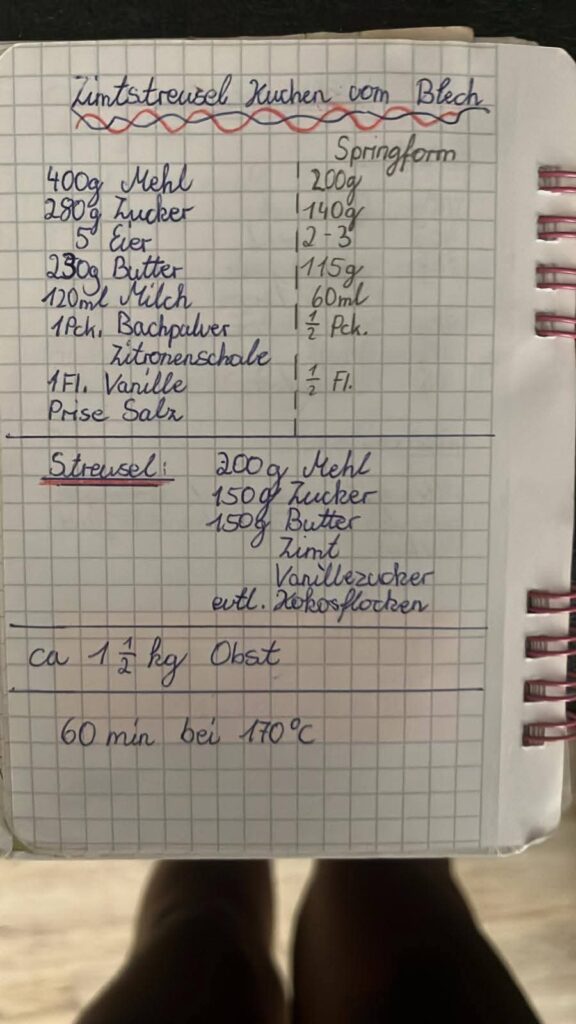 Zimtstreusel Kuchen vom Blech
Springform
400g Mehl 200g
280g Zucker 140g
5 Eier 2-3
230g Butter 115g
120ml Milch 60ml
1Pck. Backpulver ½ Pck.
Zitronenschale
1Fl. Vanille ½ Fl.
Prise Salz
Streusel: 200g Mehl
150g Zucker
150g Butter
Zimt
Vanillezucker
evtl. Kokosflocken
ca 1 ½ kg Obst
60 min bei 170°C